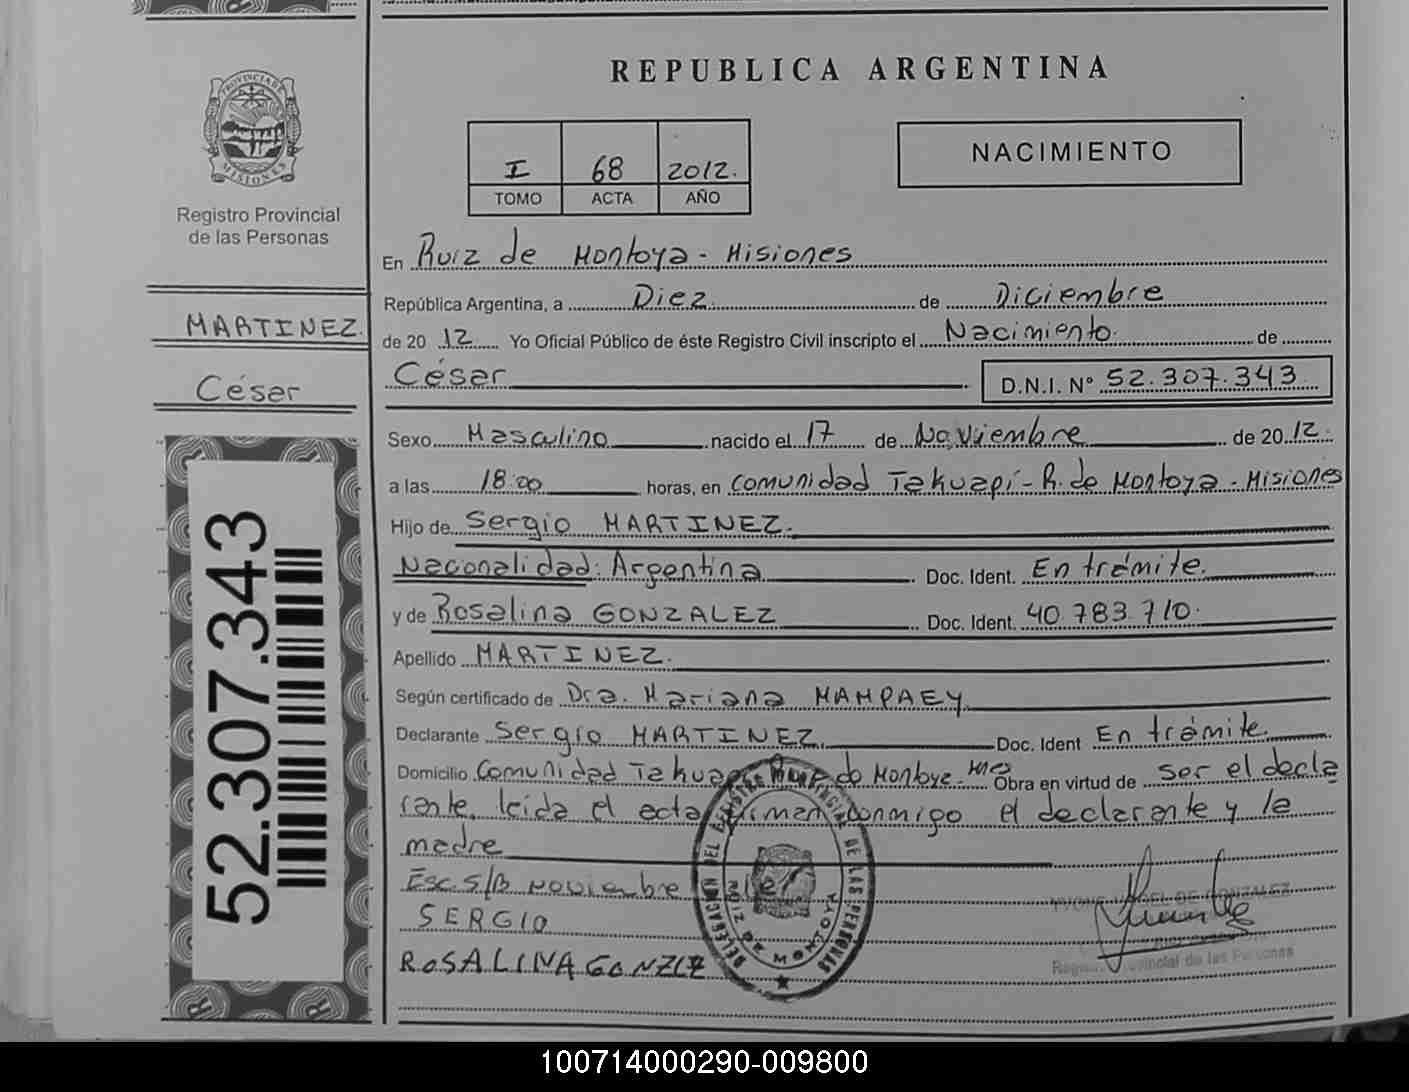 REPUBLICA ARGENTINA
PROVINCIA DE
MISIONES
Registro Provincial
de las Personas
I 68 2012.
TOMO ACTA AÑO
NACIMIENTO
MARTINEZ.
César
52.307.343
En Ruiz de Montoya - Misiones
República Argentina, a Diez de Diciembre
de 20 12 Yo Oficial Público de éste Registro Civil inscripto el Nacimiento de
César D.N.I. N° 52.307.343
Sexo Masculino nacido el 17 de Noviembre de 20 12.
a las 18:00 horas, en comunidad Takuapí - R. de Montoya - Misiones
Hijo de Sergio MARTINEZ.
Nacionalidad: Argentina Doc. Ident. En trámite.
y de Rosalina GONZALEZ Doc. Ident. 40.783.710.
Apellido MARTINEZ.
Según certificado de Dra. Mariana MAMPAEY
Declarante Sergio MARTINEZ. Doc. Ident En trámite.
Domicilio Comunidad Takuapí Ruiz de Montoya - Obra en virtud de ser el decla
rante, leída el acta firman conmigo el declarante y la
madre
Esc S/B noviembre
SERGIO
ROSALINA GONZLZ
DELEGACION DEL REGISTRO PROVINCIAL DE LAS PERSONAS
RUIZ DE MONTOYA
DE GONZALEZ
Provincial de las Personas
100714000290-009800